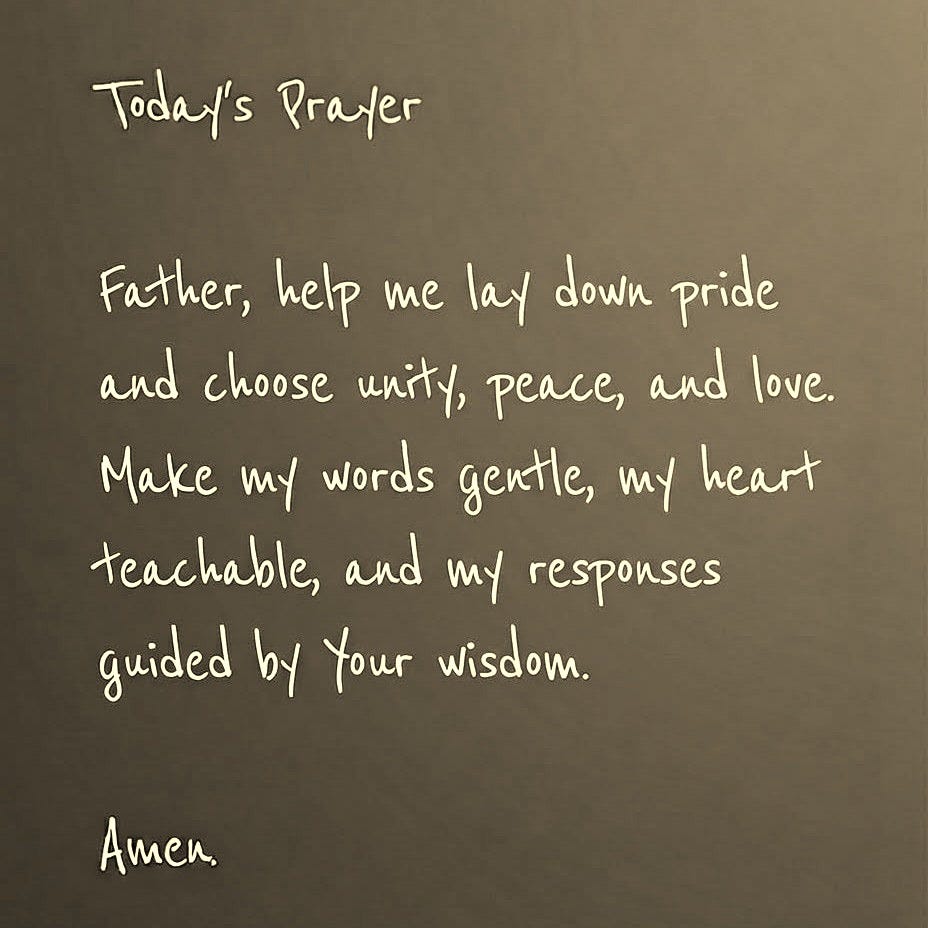 Today's Prayer
Father, help me lay down pride
and choose unity, peace, and love.
Make my words gentle, my heart
teachable, and my responses
guided by Your wisdom.
Amen.